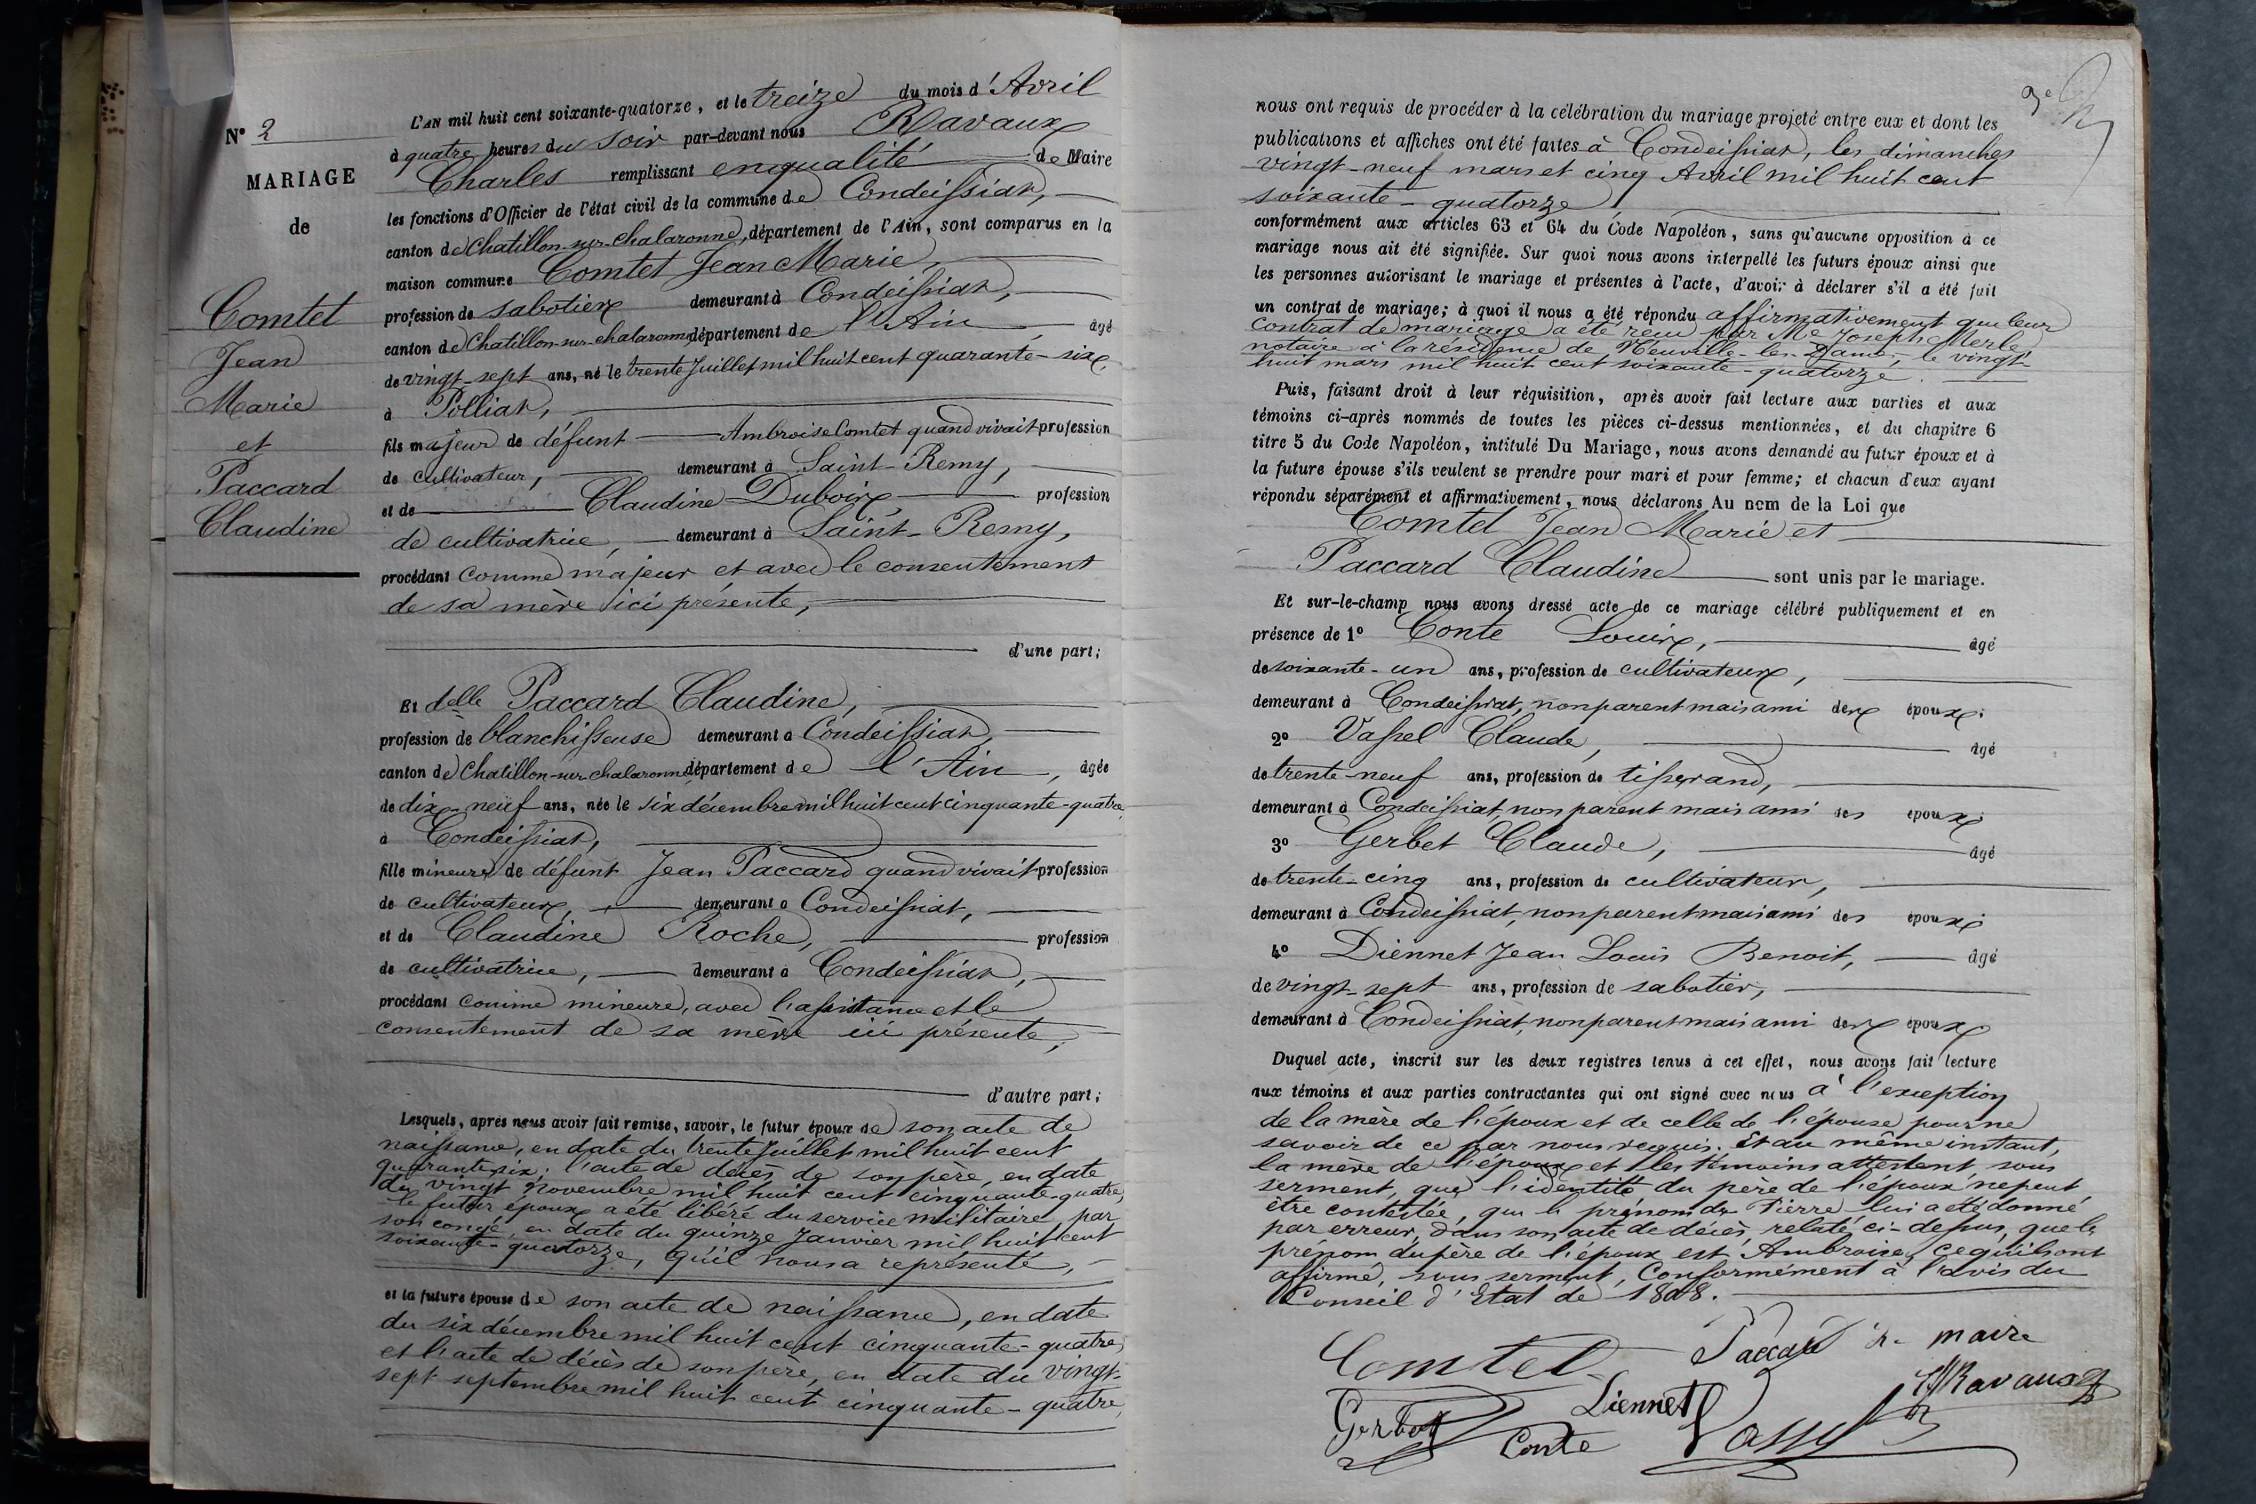 N° 2
MARIAGE
de
Comtet
Jean
Marie
et
Paccard
Claudine
L'AN mil huit cent soixante-quatorze, et le treize du mois d'Avril
à quatre heures du soir par-devant nous Ravaux
Charles remplissant en qualité de Maire
les fonctions d'Officier de l'état civil de la commune de Condeissiat,
canton de Chatillon-sur-Chalaronne, département de l'Ain, sont comparus en la
maison commune Comtet Jean Marie,
profession de sabotier demeurant à Condeissiat,
canton de Chatillon-sur-chalaronne département de l'Ain âgé
de vingt-sept ans, né le trente Juillet mil huit cent quarante-six,
à Polliat,
fils majeur de défunt Ambroise Comtet quand vivait profession
de cultivateur, demeurant à Saint-Remy,
et de Claudine Duboix profession
de cultivatrice, demeurant à Saint-Remy,
procédant comme majeur et avec le consentement
de sa mère ici présente,
d'une part;
Et delle Paccard Claudine,
profession de blanchisseuse demeurant à Condeissiat,
canton de Chatillon-sur-chalaronne, département de l'Ain, âgée
de dix-neuf ans, née le six décembre mil huit cent cinquante-quatre,
à Condeissiat,
fille mineure de défunt Jean Paccard quand vivait profession
de cultivateur, demeurant à Condeissiat,
et de Claudine Roche, profession
de cultivatrice, demeurant à Condeissiat,
procédant comme mineure, avec l'assistance et le
consentement de sa mère ici présente,
d'autre part;
Lesquels, après nous avoir fait remise, savoir, le futur époux de son acte de
naissance, en date du trente Juillet mil huit cent
quarante six; l'acte de décès de son père, en date
du vingt Novembre mil huit cent cinquante-quatre,
le futur époux a été libéré du service militaire, par
son congé, en date du quinze Janvier mil huit cent
soixante-quatorze, qu'il nous a représenté,
et la future épouse de son acte de naissance, en date
du six décembre mil huit cent cinquante-quatre
et l'acte de décès de son père, en date du vingt-
sept septembre mil huit cent cinquante-quatre,
nous ont requis de procéder à la célébration du mariage projeté entre eux et dont les
publications et affiches ont été faites à Condeissiat, les dimanches
vingt-neuf mars et cinq Avril mil huit cent
soixante-quatorze
conformément aux articles 63 et 64 du Code Napoléon, sans qu'aucune opposition à ce
mariage nous ait été signifiée. Sur quoi nous avons interpellé les futurs époux ainsi que
les personnes autorisant le mariage et présentes à l'acte, d'avoir à déclarer s'il a été fait
un contrat de mariage; à quoi il nous a été répondu affirmativement que leur
contrat de mariage a été reçu par Me Joseph Merle
notaire à la résidence de Neuville-les-Dames, le vingt-
huit mars mil huit cent soixante-quatorze.
Puis, faisant droit à leur réquisition, après avoir fait lecture aux parties et aux
témoins ci-après nommés de toutes les pièces ci-dessus mentionnées, et du chapitre 6
titre 5 du Code Napoléon, intitulé Du Mariage, nous avons demandé au futur époux et à
la future épouse s'ils veulent se prendre pour mari et pour femme; et chacun d'eux ayant
répondu séparément et affirmativement, nous déclarons Au nom de la Loi que
Comtet Jean Marie et
Paccard Claudine sont unis par le mariage.
Et sur-le-champ nous avons dressé acte de ce mariage célébré publiquement et en
présence de 1° Conte Louis, âgé
de soixante-un ans, profession de cultivateur,
demeurant à Condeissiat, non parent mais ami des époux;
2° Vassel Claude, âgé
de trente-neuf ans, profession de tisserand,
demeurant à Condeissiat, non parent mais ami des époux;
3° Gerbet Claude, âgé
de trente-cinq ans, profession de cultivateur,
demeurant à Condeissiat, non parent mais ami des époux;
4° Diennet Jean Louis Benoit, âgé
de vingt-sept ans, profession de sabotier,
demeurant à Condeissiat, non parent mais ami des époux,
Duquel acte, inscrit sur les deux registres tenus à cet effet, nous avons fait lecture
aux témoins et aux parties contractantes qui ont signé avec nous à l'exception
de la mère de l'époux et de celle de l'épouse pour ne
savoir de ce par nous requis. Et au même instant,
la mère de l'époux et les témoins attestent sous
serment, que l'identité du père de l'époux ne peut
être contestée, que le prénom de Pierre lui a été donné
par erreur, dans son acte de décès, relaté ci-dessus, que le
prénom du père de l'époux est Ambroise, ce qu'ils ont
affirmé, sous serment, Conformément à l'avis du
Conseil d'Etat de 1808.
Comtet Paccard le maire
Gerbet Diennet Ravaux
Conte Vassel